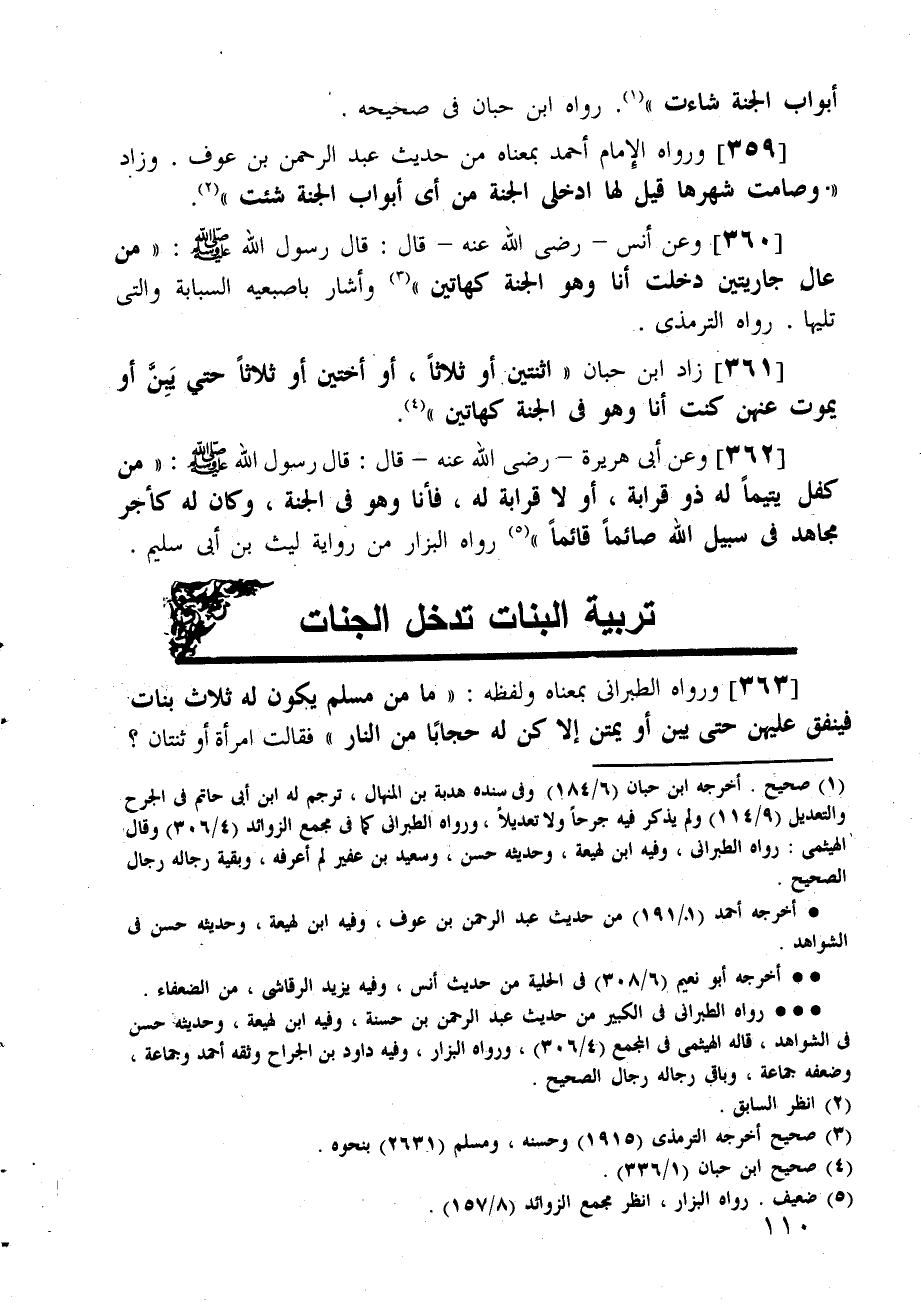 أبواب الجنة شاءت »(١). رواه ابن حبان فى صحيحه .
[٣٥٩] ورواه الإمام أحمد بمعناه من حديث عبد الرحمن بن عوف . وزاد
« وصامت شهرها قيل لها ادخلى الجنة من أى أبواب الجنة شئت »(٢).
[٣٦٠] وعن أنس – رضى الله عنه – قال : قال رسول الله ﷺ : « من
عال جاريتين دخلت أنا وهو الجنة كهاتين »(٣) وأشار باصبعيه السبابة والتى
تليها . رواه الترمذى .
[٣٦١] زاد ابن حبان « اثنتين أو ثلاثاً ، أو أختين أو ثلاثاً حتي يَبِنَّ أو
يموت عنهن كنت أنا وهو فى الجنة كهاتين »(٤).
[٣٦٢] وعن أبى هريرة – رضى الله عنه – قال : قال رسول الله ﷺ : « من
كفل يتيماً له ذو قرابة ، أو لا قرابة له ، فأنا وهو فى الجنة ، وكان له كأجر
مجاهد فى سبيل الله صائماً قائماً »(٥) رواه البزار من رواية ليث بن أبى سليم .
تربية البنات تدخل الجنات
[٣٦٣] ورواه الطبرانى بمعناه ولفظه : « ما من مسلم يكون له ثلاث بنات
فينفق عليهن حتى يبن أو يمتن إلا كن له حجابًا من النار » فقالت امرأة أو ثنتان ؟
(١) صحيح . أخرجه ابن حبان (١٨٤/٦) وفى سنده هدبة بن المنهال ، ترجم له ابن أبى حاتم فى الجرح
والتعديل (١١٤/٩) ولم يذكر فيه جرحاً ولا تعديلاً ، ورواه الطبرانى كما فى مجمع الزوائد (٣٠٦/٤) وقال
الهيثمى : رواه الطبرانى ، وفيه ابن لهيعة ، وحديثه حسن ، وسعيد بن عفير لم أعرفه ، وبقية رجاله رجال
الصحيح .
● أخرجه أحمد (١٩١/١) من حديث عبد الرحمن بن عوف ، وفيه ابن لهيعة ، وحديثه حسن فى
الشواهد .
●● أخرجه أبو نعيم (٣٠٨/٦) فى الحلية من حديث أنس ، وفيه يزيد الرقاشى ، من الضعفاء .
●●● رواه الطبرانى فى الكبير من حديث عبد الرحمن بن حسنة ، وفيه ابن لهيعة ، وحديثه حسن
فى الشواهد ، قاله الهيثمى فى المجمع (٣٠٦/٤) ، ورواه البزار ، وفيه داود بن الجراح وثقه أحمد وجماعة ،
وضعفه جماعة ، وباقى رجاله رجال الصحيح .
(٢) انظر السابق .
(٣) صحيح أخرجه الترمذى (١٩١٥) وحسنه ، ومسلم (٢٦٣١) بنحوه .
(٤) صحيح ابن حبان (٣٣٦/١) .
(٥) ضعيف . رواه البزار ، انظر مجمع الزوائد (١٥٧/٨) .
١١٠